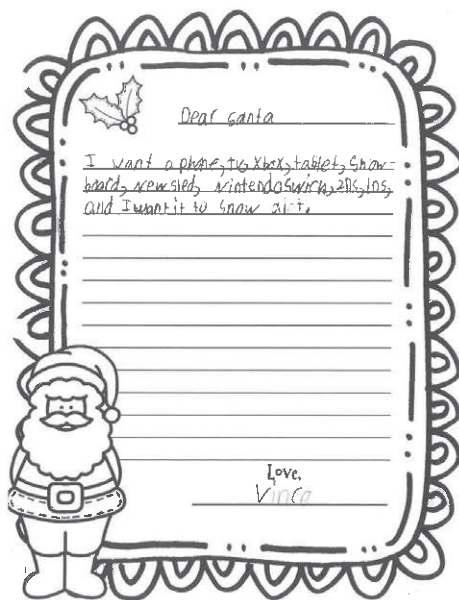 Dear santa
I want a phone, tv, Xbox, tablet, Snow-
board, New sled, Nintendo Swich, 2Ds,
and I want it to snow
Love,
Vince